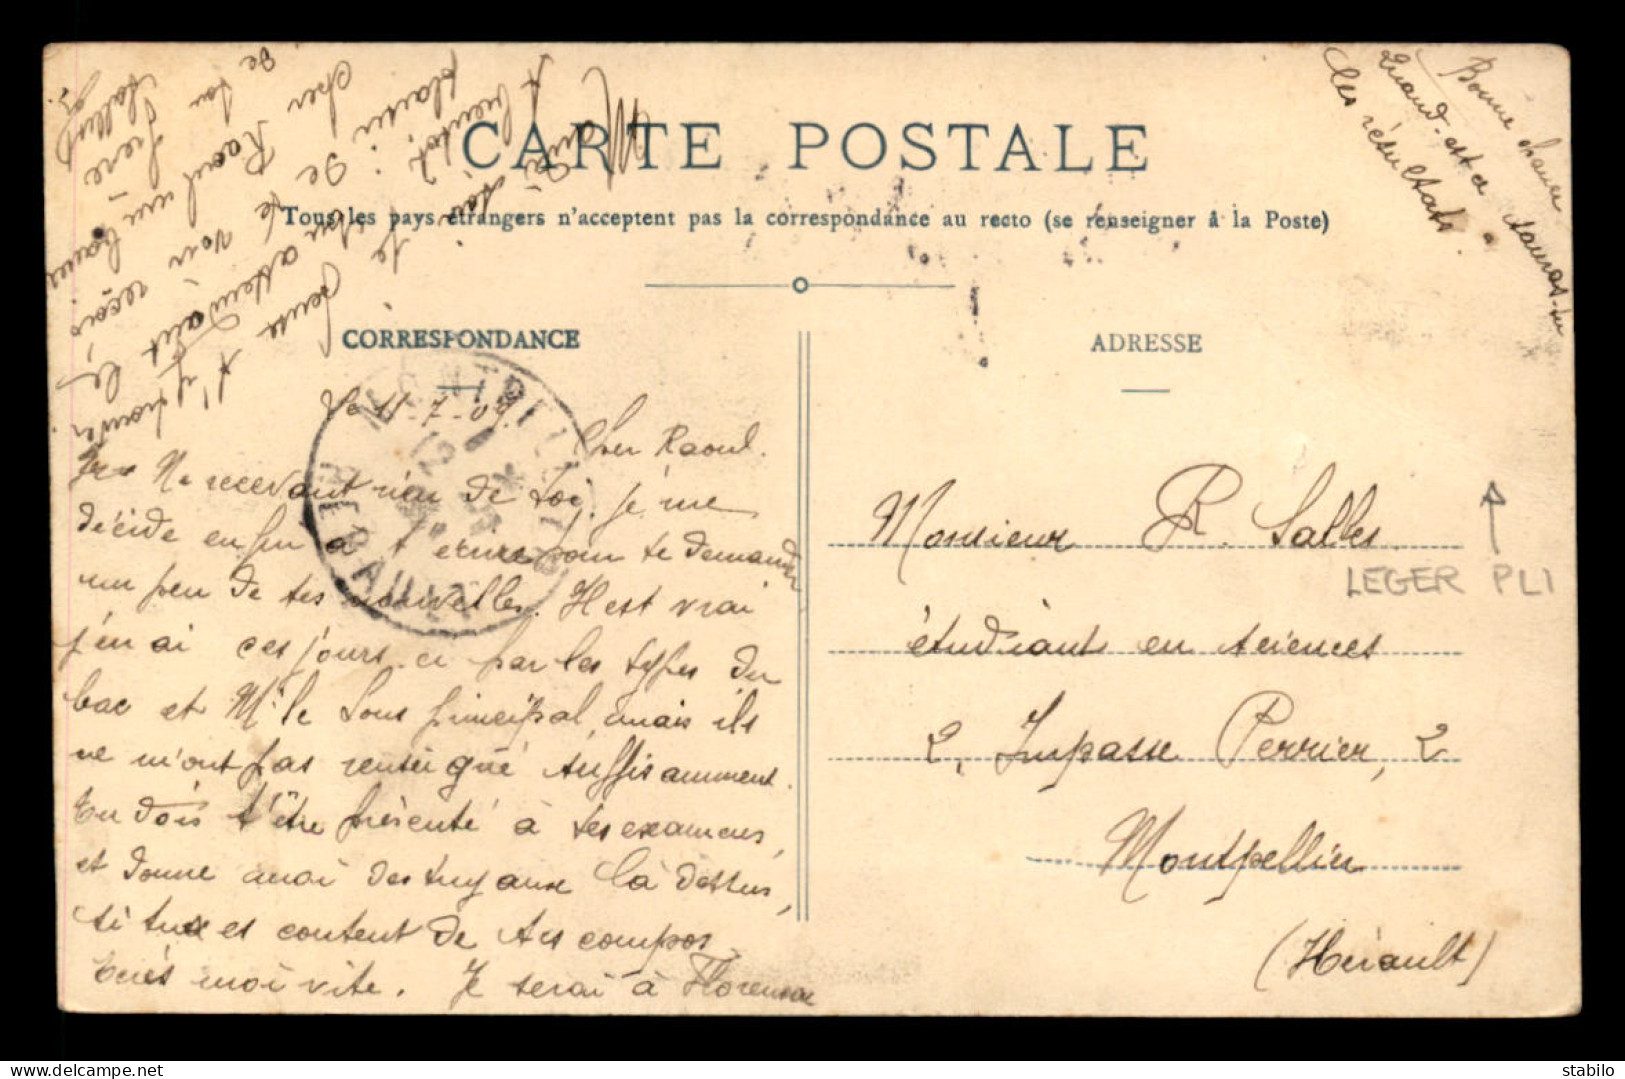 CARTE POSTALE
Tous les pays étrangers n'acceptent pas la correspondance au recto (se renseigner à la Poste)
CORRESPONDANCE
Le 11-7-09
Cher Raoul.
Ne recevant rien de toi, je me
décide enfin à t'écrire pour te demander
un peu de tes nouvelles. Il est vrai
j'en ai ces jours-ci par les types du
bac et Mr le Sous principal, mais ils
ne m'ont pas renseigné suffisamment.
Tu dois t'être présenté à tes examens,
et donne moi des tuyaux là dessus,
si tu es content de tes compos
écris moi vite. Je serai à Florensac
Mardi soir, je pense
A bientôt
plaisir de te voir reçois
cher Raoul une bonne
de ton frère
Salles
ADRESSE
Monsieur R. Salles
étudiant en sciences
2, Impasse Perrier, 2
Montpellier
(Hérault)
Bonne chance
Quand est-ce auras-tu
les résultats.
LEGER PLI
MONTPELLIER
HERAULT
stabilo